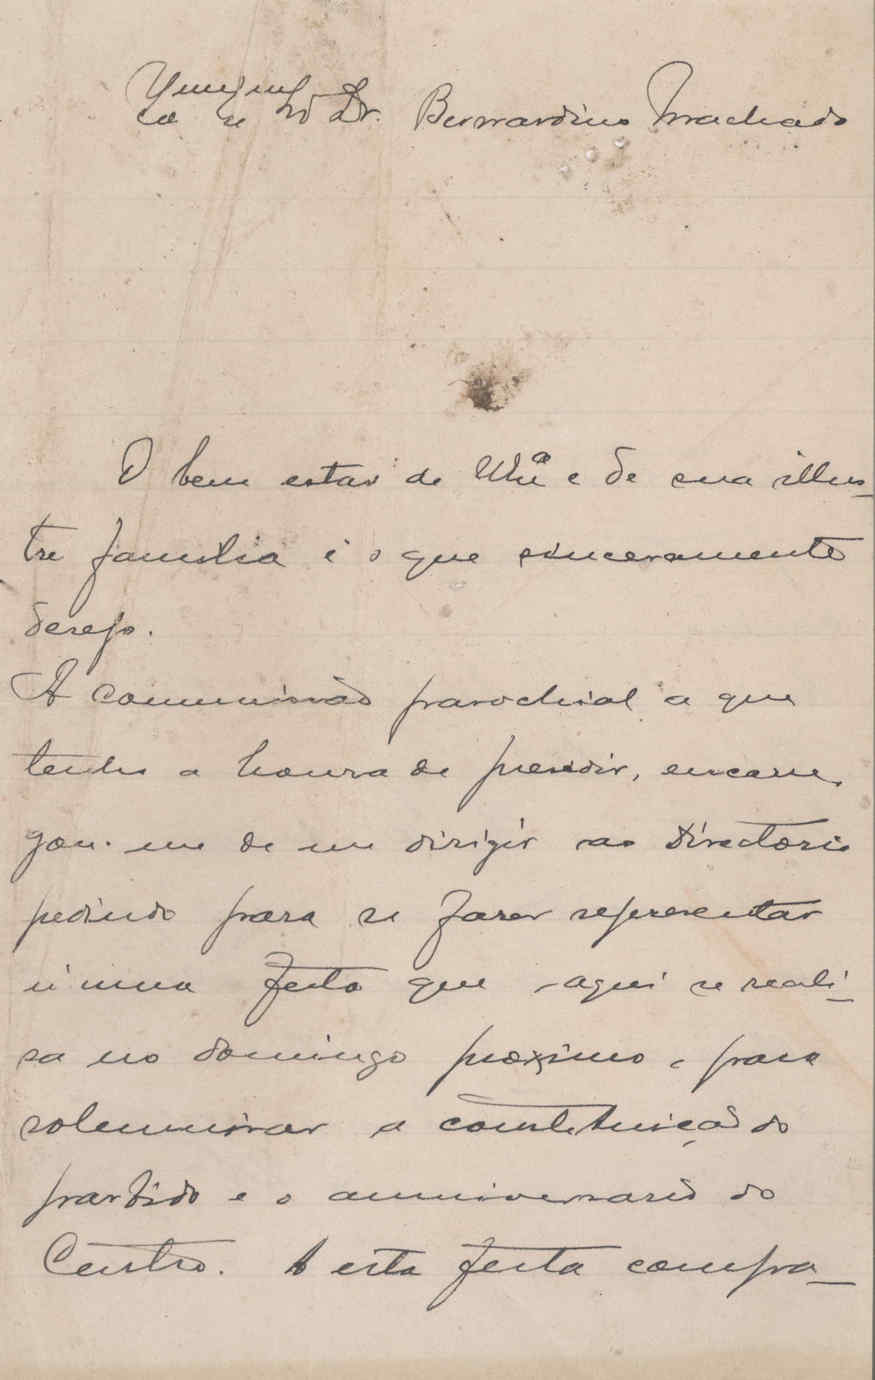 Dr. Bernardino Machado
O bem estar de V. Exª e de sua illus-
tre familia é o que sinceramente
desejo.
A commissão parochial a que
tenho a honra de presidir, encarre-
gou-me de me dirigir ao Directorio
pedindo para se fazer representar
n'uma festa que aqui se reali-
sa no domingo proximo e para
solemnisar a constituição do
partido e o anniversario do
Centro. A esta festa compa-